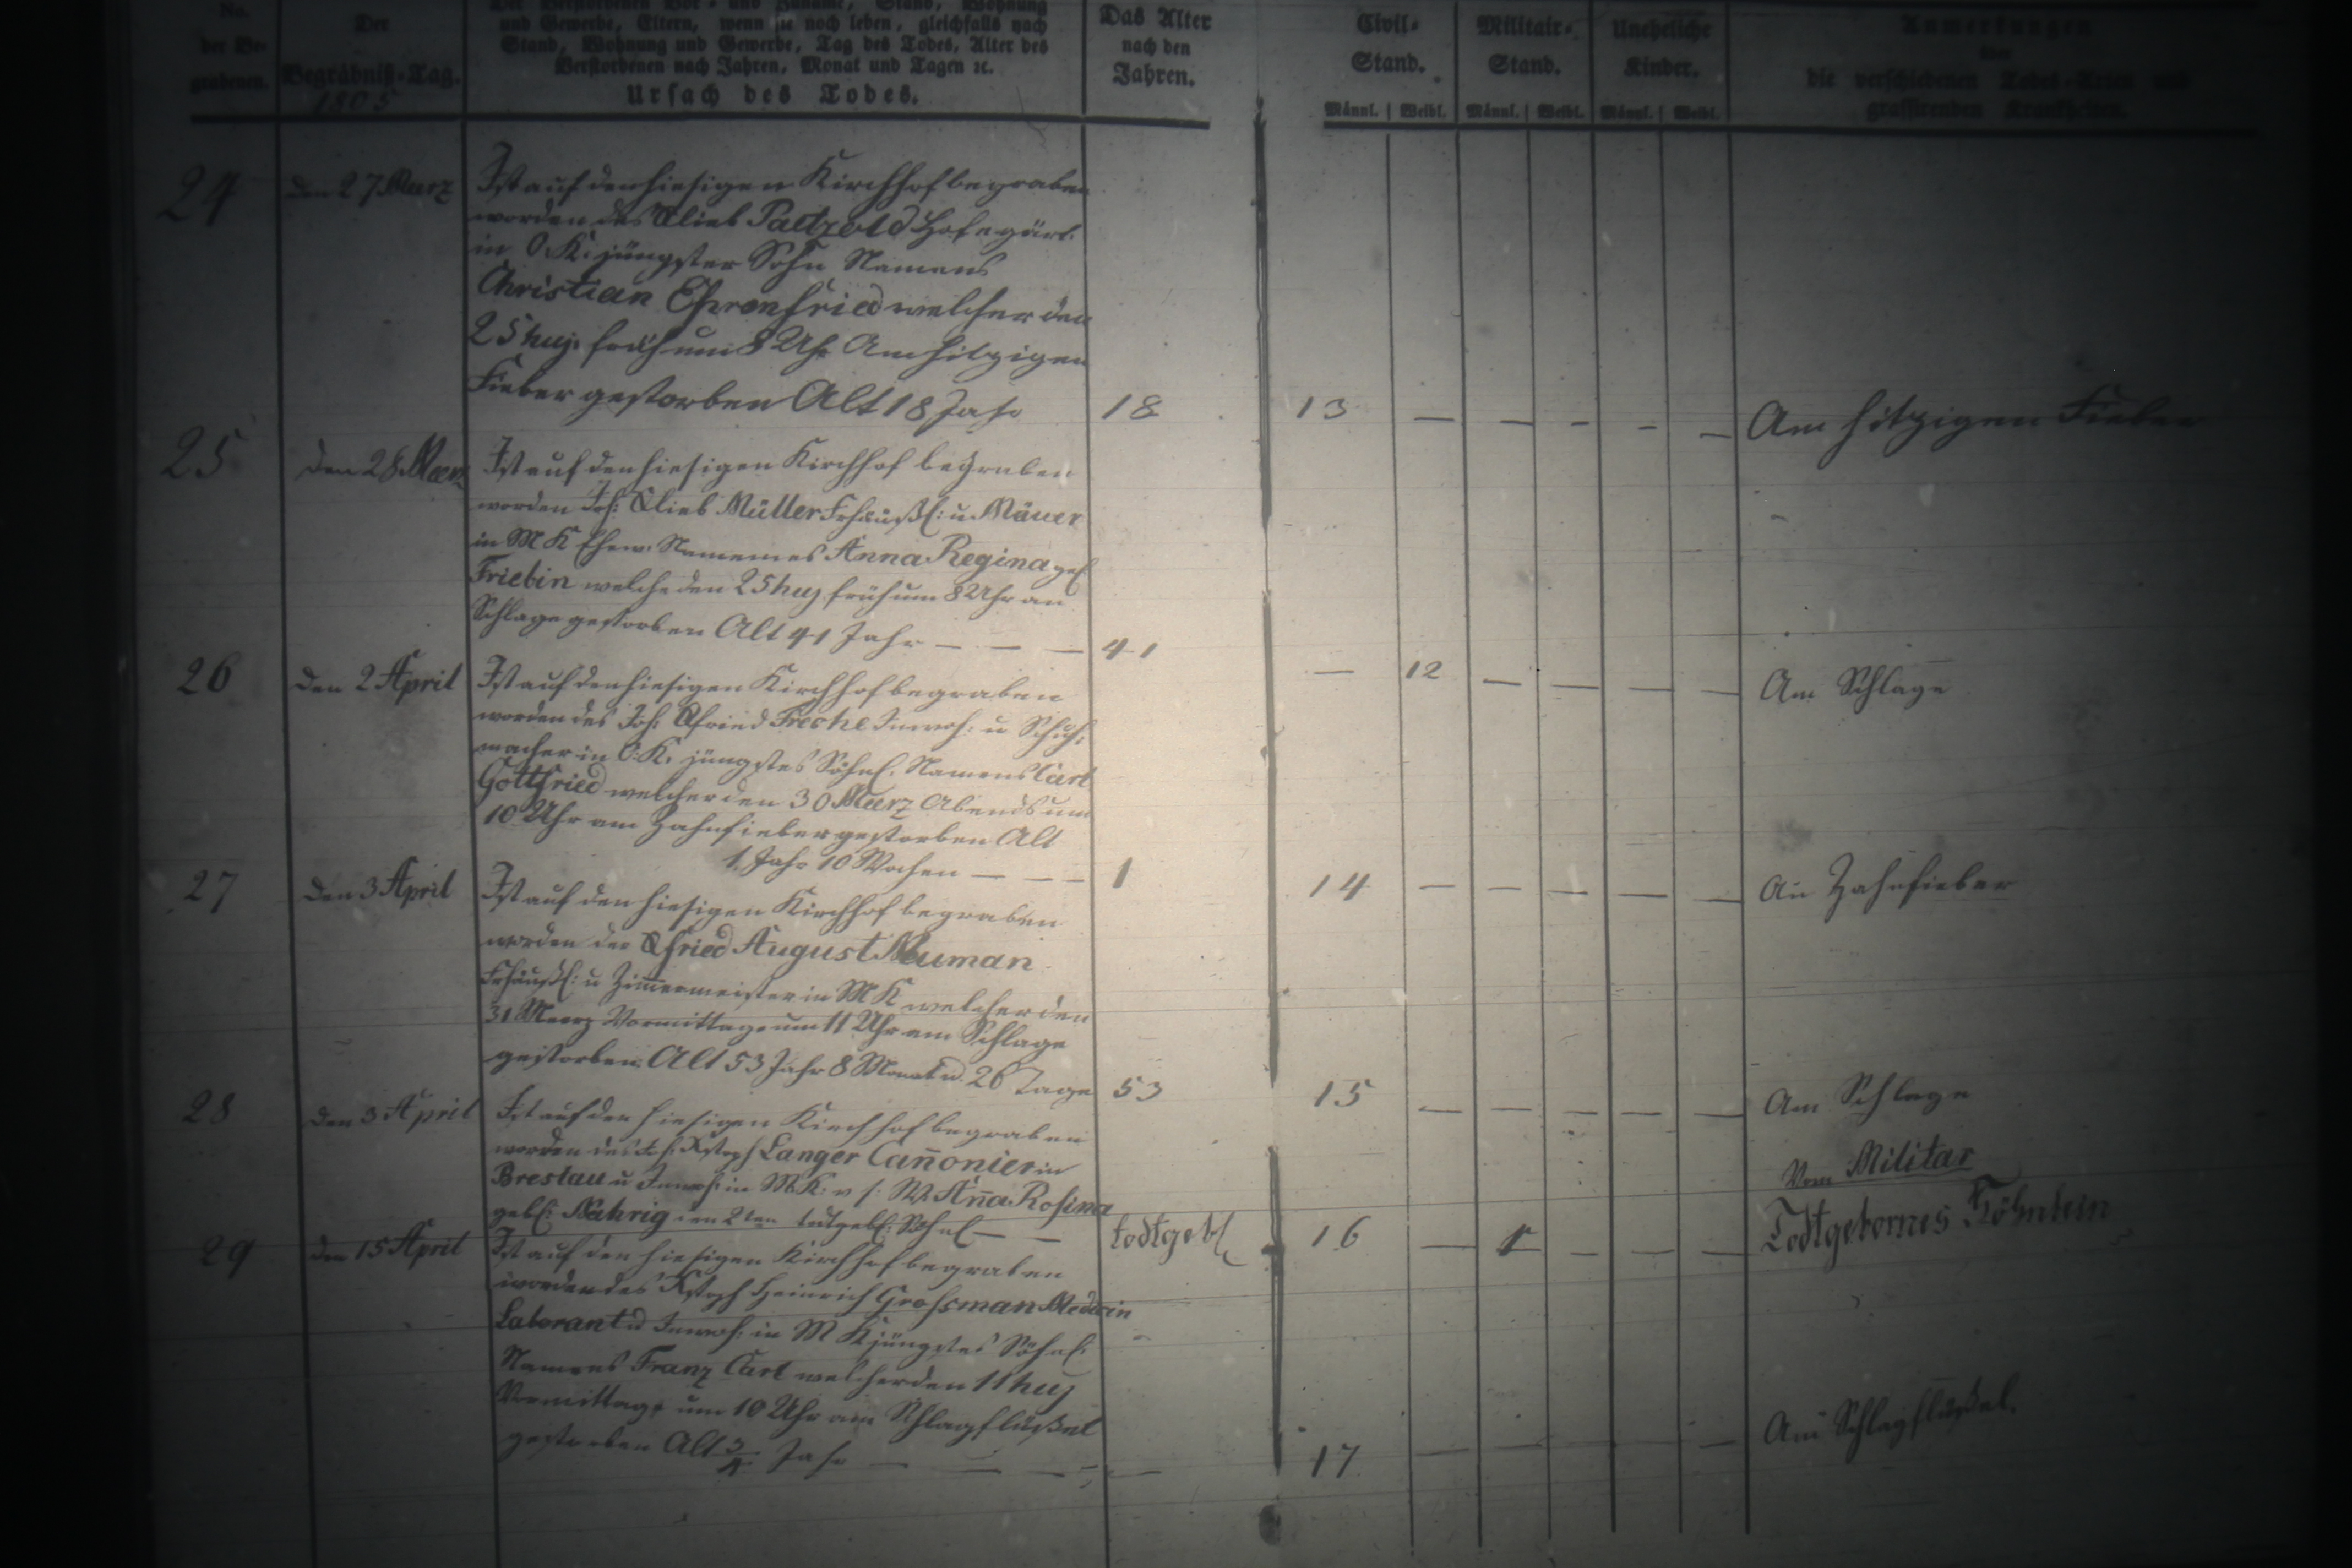 No.
der Be-
grabenen.
Der
Begräbniß-Tag.
1805
Der Verstorbenen Vor- und Zuname, Stand, Wohnung
und Gewerbe, Eltern, wenn sie noch leben, gleichfalls nach
Stand, Wohnung und Gewerbe, Tag des Todes, Alter des
Verstorbenen nach Jahren, Monat und Tagen ꝛc.
Ursach des Todes.
Das Alter
nach den
Jahren.
Civil-
Stand.
Militair-
Stand.
Uneheliche
Kinder.
Männl. Weibl. Männl. Weibl. Männl. Weibl.
Anmerkungen
über
die verschiedenen Todes-Arten und
grassirenden Krankheiten.
24 den 27 Marz Ist auf den hiesigen Kirchhof begraben
worden des Glieb Paetzold Hofegärt:
in O.K: jüngster Sohn Namens
Christian Ehrenfried welcher den
25 huj: früh um 8 Uhr Am hitzigen
Fieber gestorben Alt 18 Jahr 18 13 — — — — — Am hitzigen Fieber
25 den 28 Maerz Ist auf den hiesigen Kirchhof begraben
worden Joh: Glieb Müller Frhäußl: u. Mäuer
in M K Ehew. Namemes Anna Regina geb
Friebin welche den 25 huj früh um 8 Uhr an
Schlage gestorben Alt 41 Jahr — — — 41 — 12 — — — — Am Schlage
26 den 2 April Ist auf den hiesigen Kirchhof begraben
worden des Joh: Gfried Freche Inwoh: u Schuh:
macher in O.K. jüngstes Söhnl. Namens Carl
Gottfried welcher den 30 Maerz Abends um
10 Uhr am Zahnfieber gestorben Alt
1. Jahr 10 Wochen — — — 1 14 — — — — — An Zahnfieber
27 den 3 April Ist auf den hiesigen Kirchhof begraben
worden der Gfried August Neuman
Frhäußl: u Zimmermeister in M K welcher den
31 Maerz Vormittags um 11 Uhr am Schlage
gestorben Alt 53 Jahr 8 Monat u. 26 Tage 53 15 — — — — — Am Schlage
28 den 3 April Ist auf den hiesigen Kirchhof begraben
worden des Joh: Kstoph Langer Cañonier in
Breslau u Inwoh: in M.K: v s: W. Añna Rosina
gebl: Nährig den 2ten todtgebl: Söhnl — — todtgebl 16 — 1 — — — Vom Militar
Todtgebornes Söhnlein
29 den 15 April Ist auf den hiesigen Kirchhof begraben
worden des Kstoph Heinrich Grossman Medicin
Laborant u Inwoh: in M K jüngstes Söhnl:
Namens Franz Carl welcher den 11 huj
Vormittags um 10 Uhr am Schlagflüßel
gestorben Alt 3/4 Jahr — — — — 17 — — — — — Am Schlagflüßel.